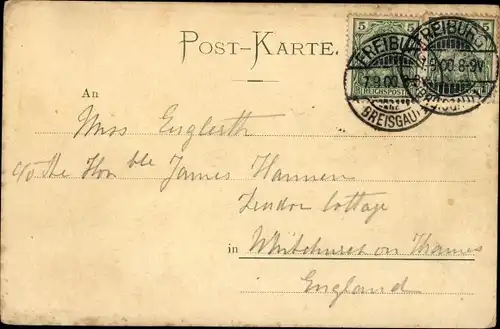 POST-KARTE.
5 5 5
FREIBURG
FREIBURG
7.9.00. 8-9V.
7.9.00
REICHSPOST
BREISGAU
An
Miss Englerth
c/o the Honble James Hannen
Cottage
in Whitchurch on Thames
England